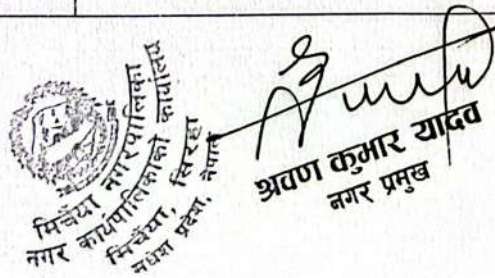 मिर्चैया नगरपालिका
नगर कार्यपालिकाको कार्यालय
मिर्चैया, सिरहा
मधेश प्रदेश, नेपाल
श्रवण कुमार यादव
नगर प्रमुख